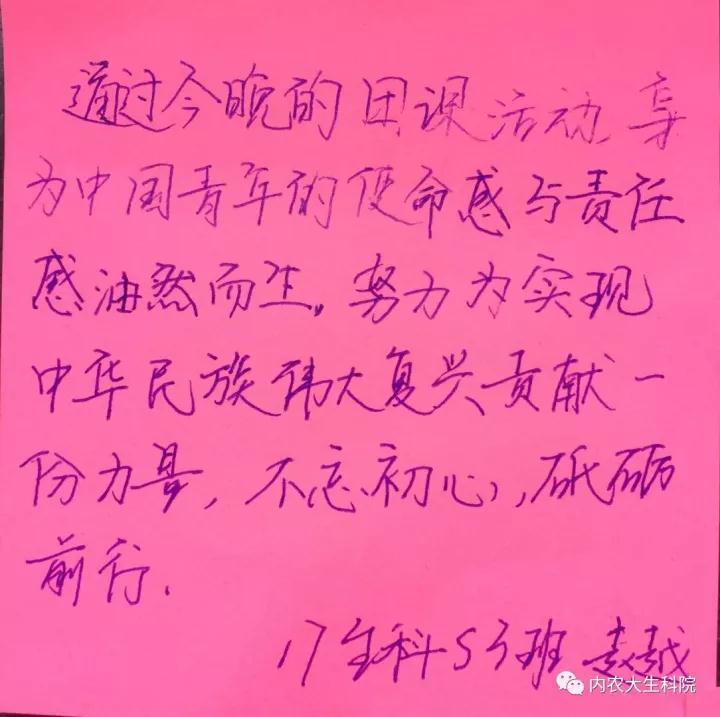 通过今晚的团课活动,身
为中国青年的使命感与责任
感油然而生。努力为实现
中华民族伟大复兴贡献一
份力量,不忘初心,砥砺
前行.
17生科S3班 袁越
内农大生科院